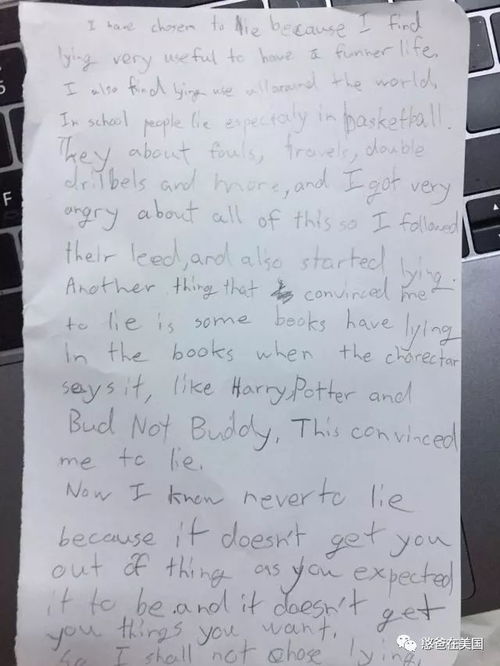 I have chosen to lie because I find
lying very useful to have a funner life.
I also find lying use allaround the world.
In school people lie especialy in basketball.
They about fouls, travels, double
drilbels and more, and I got very
angry about all of this so I followed
their leed, and also started lying.
Another thing that convinced me
to lie is some books have lying
in the books when the charectar
says it, like Harry Potter and
Bud Not Buddy. This convinced
me to lie.
Now I know never to lie
because it doesn't get you
out of thing as you expected
it to be. and it doesn't get
you things you want.
So I shall not chose lying
憨爸在美国
F